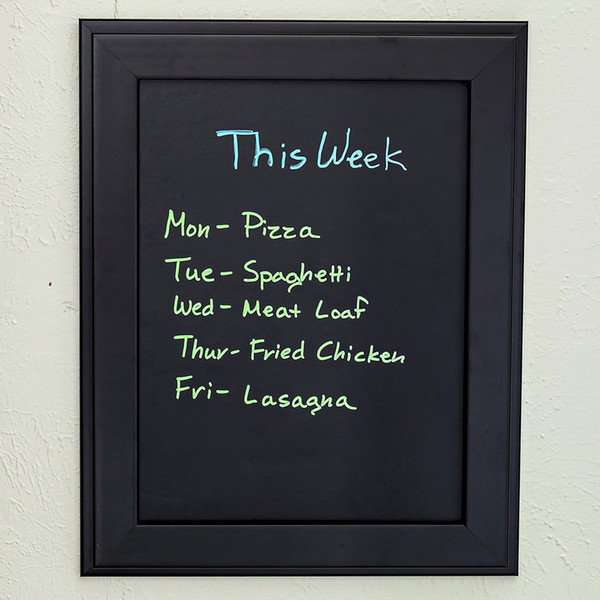 This Week
Mon- Pizza
Tue- Spaghetti
Wed- Meat Loaf
Thur- Fried Chicken
Fri- Lasagna